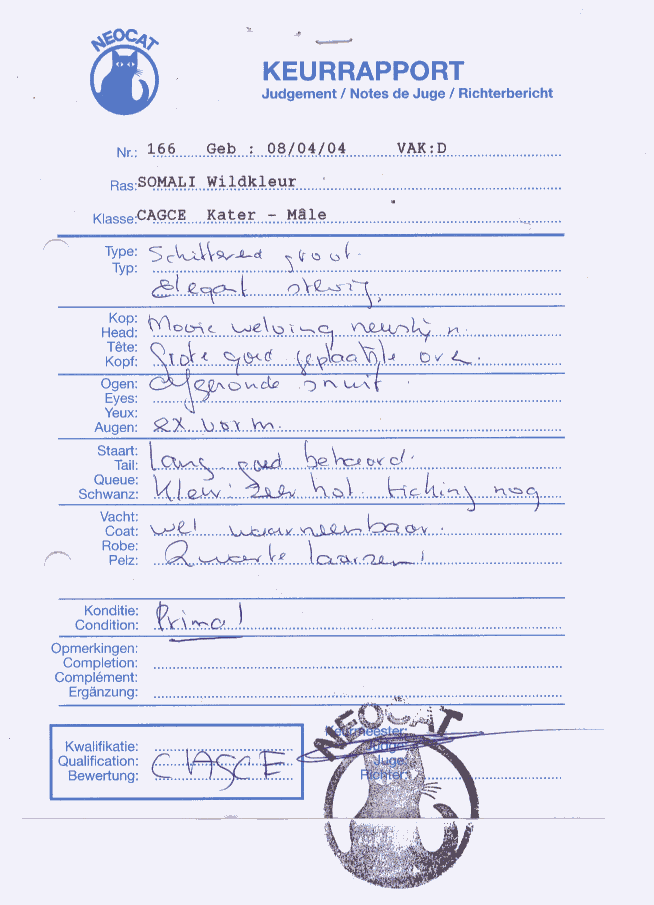 NEOCAT
KEURRAPPORT
Judgement / Notes de Juge / Richterbericht
Nr.: 166 Geb : 08/04/04 VAK:D
Ras: SOMALI Wildkleur
Klasse: CAGCE Kater - Mâle
Type: Schitterend groot.
Typ:
Elegant stevig,
Kop: Mooie welving neuslijn.
Head:
Tête: Grote goed geplaatste oren.
Kopf:
Ogen: afgeronde snuit
Eyes:
Yeux:
Augen: ex vorm.
Staart: Lang goed behaard.
Tail:
Queue: Kleur: zeer hot ticking nog
Schwanz:
Vacht:
Coat: wel waarneembaar.
Robe:
Pelz: Zwarte laarzen!
Konditie: Prima!
Condition:
Opmerkingen:
Completion:
Complément:
Ergänzung:
Kwalifikatie:
Qualification: CAGCE
Bewertung:
Keurmeester:
Judge:
Juge:
Richter:
NEOCAT